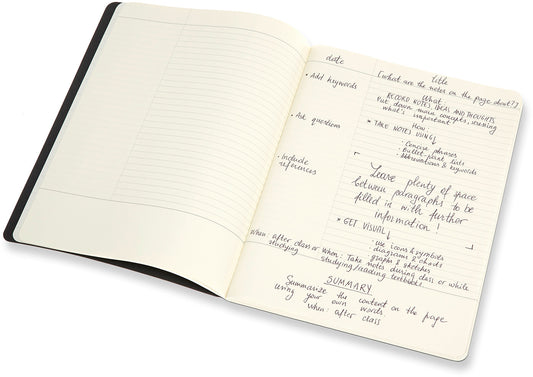 date
title
[what are the notes on the page about?]
• Add keywords
What
RECORD NOTES, IDEAS AND THOUGHTS
Put down main concepts, meaning
what's important
• Ask questions
How
* TAKE NOTES USING
• Concise phrases
• Bullet point lists
• Abbreviations & keywords
• Include
references
Leave plenty of space
between paragraphs to be
filled in with further
information!
* GET VISUAL
• Use icons & symbols
• diagrams & charts
• graphs & sketches
When: after class or
studying
When: Take notes during class or while
studying/reading textbooks
SUMMARY
Summarise the content on the page
using your own words.
when: after class